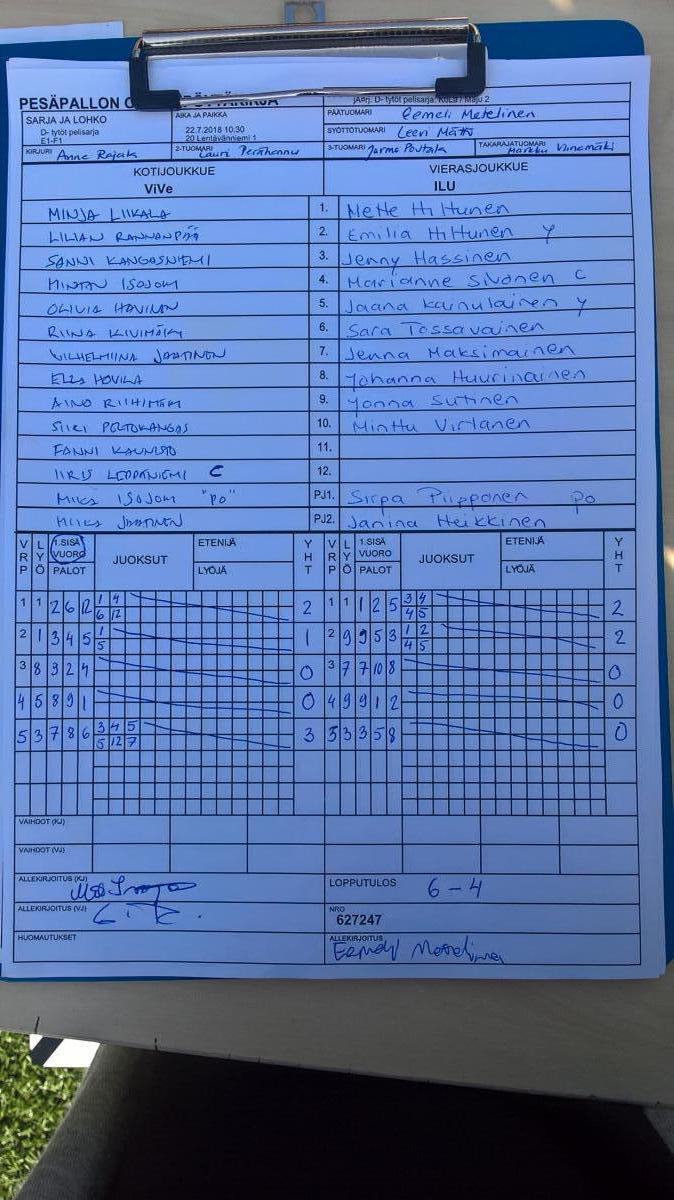 PESÄPALLON
SARJA JA LOHKO
D- tytöt pelisarja
E1-F1
AIKA JA PAIKKA
22.7.2018 10:30
20 Lentävänniemi 1
jäArj. D- tytöt pelisarja: KoLu / Maju 2
PÄÄTUOMARI Eemeli Metelinen
SYÖTTÖTUOMARI Leevi Mätt
KIRJURI Anne Rajala
2-TUOMARI Lauri Perähannu
3-TUOMARI Jarmo Poutala
TAKARAJATUOMARI Markku Viinamäki
KOTIJOUKKUE
ViVe
VIERASJOUKKUE
ILU
MINJA LIIKALA 1. Mette Hiltunen
LILIAN RANNANPÄÄ 2. Emilia Hiltunen Y
SANNI KANGASNIEMI 3. Jenny Hassinen
MINTTU ISOJOKI 4. Marianne Sivonen C
OLIVIA HAVUNEN 5. Jaana Kainulainen Y
RIINA KIVIMÄKI 6. Sara Tossavainen
VILHELMIINA JAATINEN 7. Jenna Maksimainen
ELLA HOVILA 8. Johanna Huurinainen
AINO RIIHIMÄKI 9. Jonna Sutinen
SIIRI PELTOKANGAS 10. Minttu Virtanen
FANNI KAUNISTO 11.
IIRIS LEPPÄNIEMI C 12.
MIKA ISOJOKI "PO" PJ1. Sirpa Piipponen PO
MIIKA JAATINEN PJ2. Janina Heikkinen
VRP LYÖ 1.SISÄ VUORO PALOT JUOKSUT ETENIJÄ LYÖJÄ YHT VRP LYÖ 1.SISÄ VUORO PALOT JUOKSUT ETENIJÄ LYÖJÄ YHT
1 1 2 6 12 1 4 2 1 1 1 2 5 3 4 2
6 12 4 5
2 1 3 4 5 1 1 2 9 9 5 3 1 2 2
5 4 5
3 8 9 2 4 0 3 7 7 10 8 0
4 5 8 9 1 0 4 9 9 1 2 0
5 3 7 8 6 3 4 5 3 5 3 3 5 8 0
5 12 7
VAIHDOT (KJ)
VAIHDOT (VJ)
ALLEKIRJOITUS (KJ)
LOPPUTULOS 6-4
ALLEKIRJOITUS (VJ)
NRO
627247
HUOMAUTUKSET
ALLEKIRJOITUS
Eemeli Metelinen